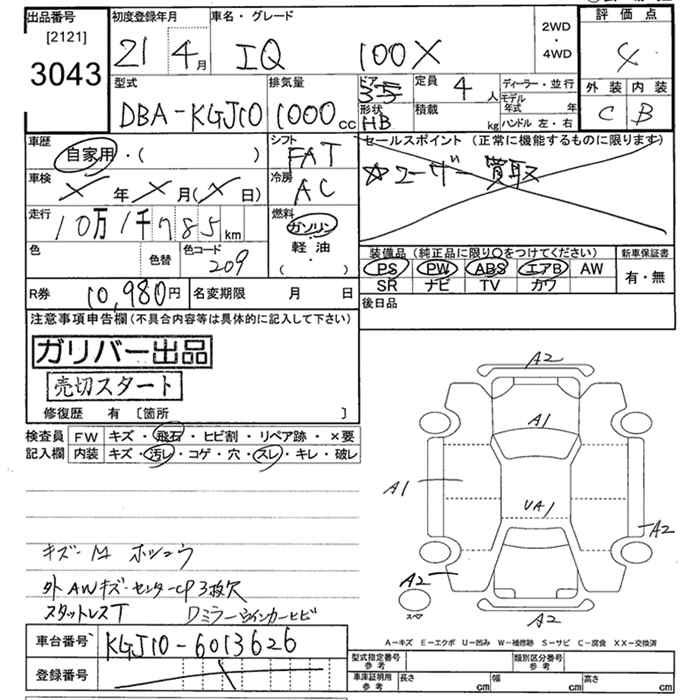 出品番号 [2121] 3043
初度登録年月 21 4月
車名・グレード IQ 100X
2WD・4WD
評価点 4
外装 内装
C B
型式 DBA-KGJ10
排気量 1000cc
ドア 3 5
形状 HB
定員 4人
積載 kg
ディーラー・並行
モデル年式 年
ハンドル 左・右
車歴 自家用・( )
シフト FAT
セールスポイント (正常に機能するものに限ります)
☆ユーザー買取
車検 X年X月(X日)
冷房 AC
走行 10万1千785km
燃料 ガソリン・軽・油・( )
色 色替 色コード 209
装備品 (純正品に限り○をつけてください)
新車保証書
PS PW ABS エアB AW
有・無
SR ナビ TV カワ
R券 10,980円
名変期限 月 日
後日品
注意事項申告欄(不具合内容等は具体的に記入して下さい)
ガリバー出品
売切スタート
修復歴 有 〔箇所 〕
検査員 FW キズ・飛石・ヒビ割・リペア跡・×要
記入欄 内装 キズ・汚レ・コゲ・穴・スレ・キレ・破レ
A2
A1
A1
UA1
A2
A2
スペア
A2
キズ-M ホシュウ
外AWキズ-センターCP3枚欠
スタットレスT Dミラーウインカーヒビ
A-キズ E-エクボ U-凹み W-補修跡 S-サビ C-腐食 XX-交換済
車台番号 KGJ10-6013626
型式指定番号参考
類別区分番号参考
登録番号
車庫証明用参考 長さ cm 幅 cm 高さ cm